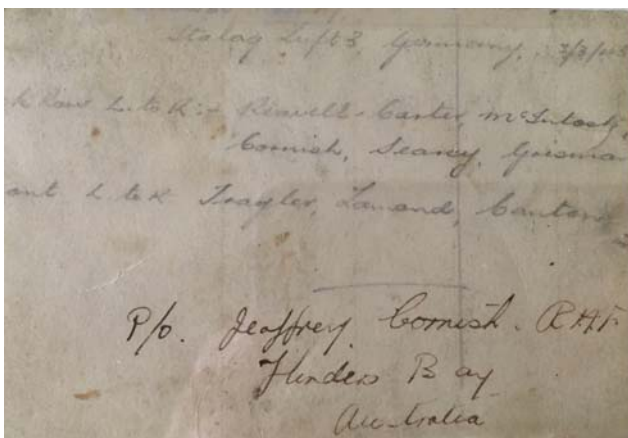 Stalag Luft 3, Germany, 3/3/43
k Row L. to R:- Kewell-Carter, McIntosh,
Cornish, Searcy, Grisma
ont L. to R Traylor, Lamond, Canton
P/o. Jeaffrey Cornish. RAF
Flinders Bay
Australia